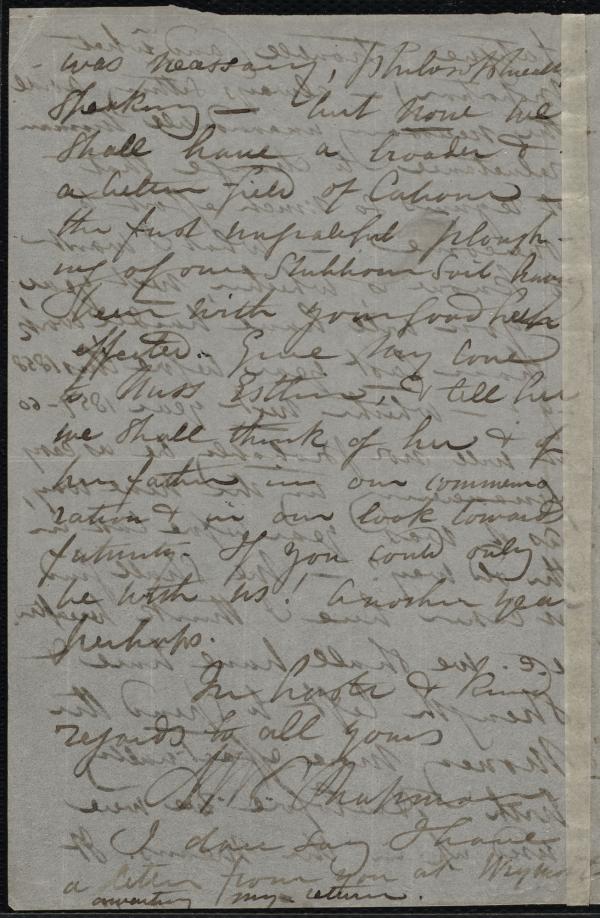 was necessary, philosophically
speaking — but now we
shall have a broader &
a better field of labour —
the first ungrateful plough-
ing of our stubborn soil having
been with your good help
effected. Give my love
to Miss Esther, & tell her
we shall think of her & of
her father in our commemo
ration & in our look towards
futurity. If you could only
be with us! Another year
perhaps.
In haste & kind
regards to all yours
M W Chapman
I dare say I have
a letter from you at Weymouth
awaiting my return.